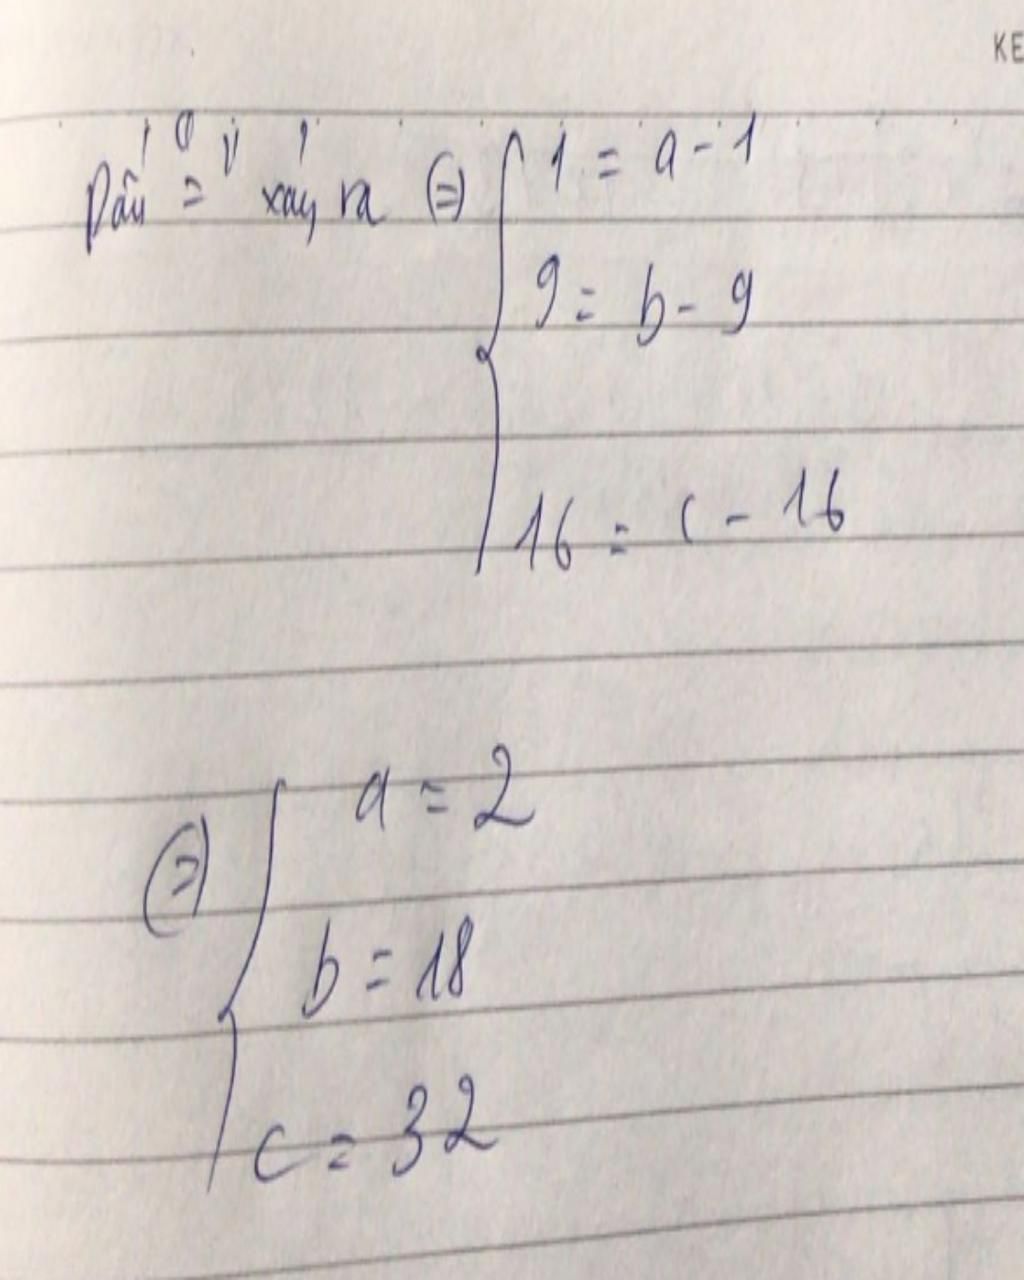 KE
Dấu "=" xảy ra (=) { 1 = a - 1
9 = b - 9
16 = c - 16
(=) { a = 2
b = 18
c = 32